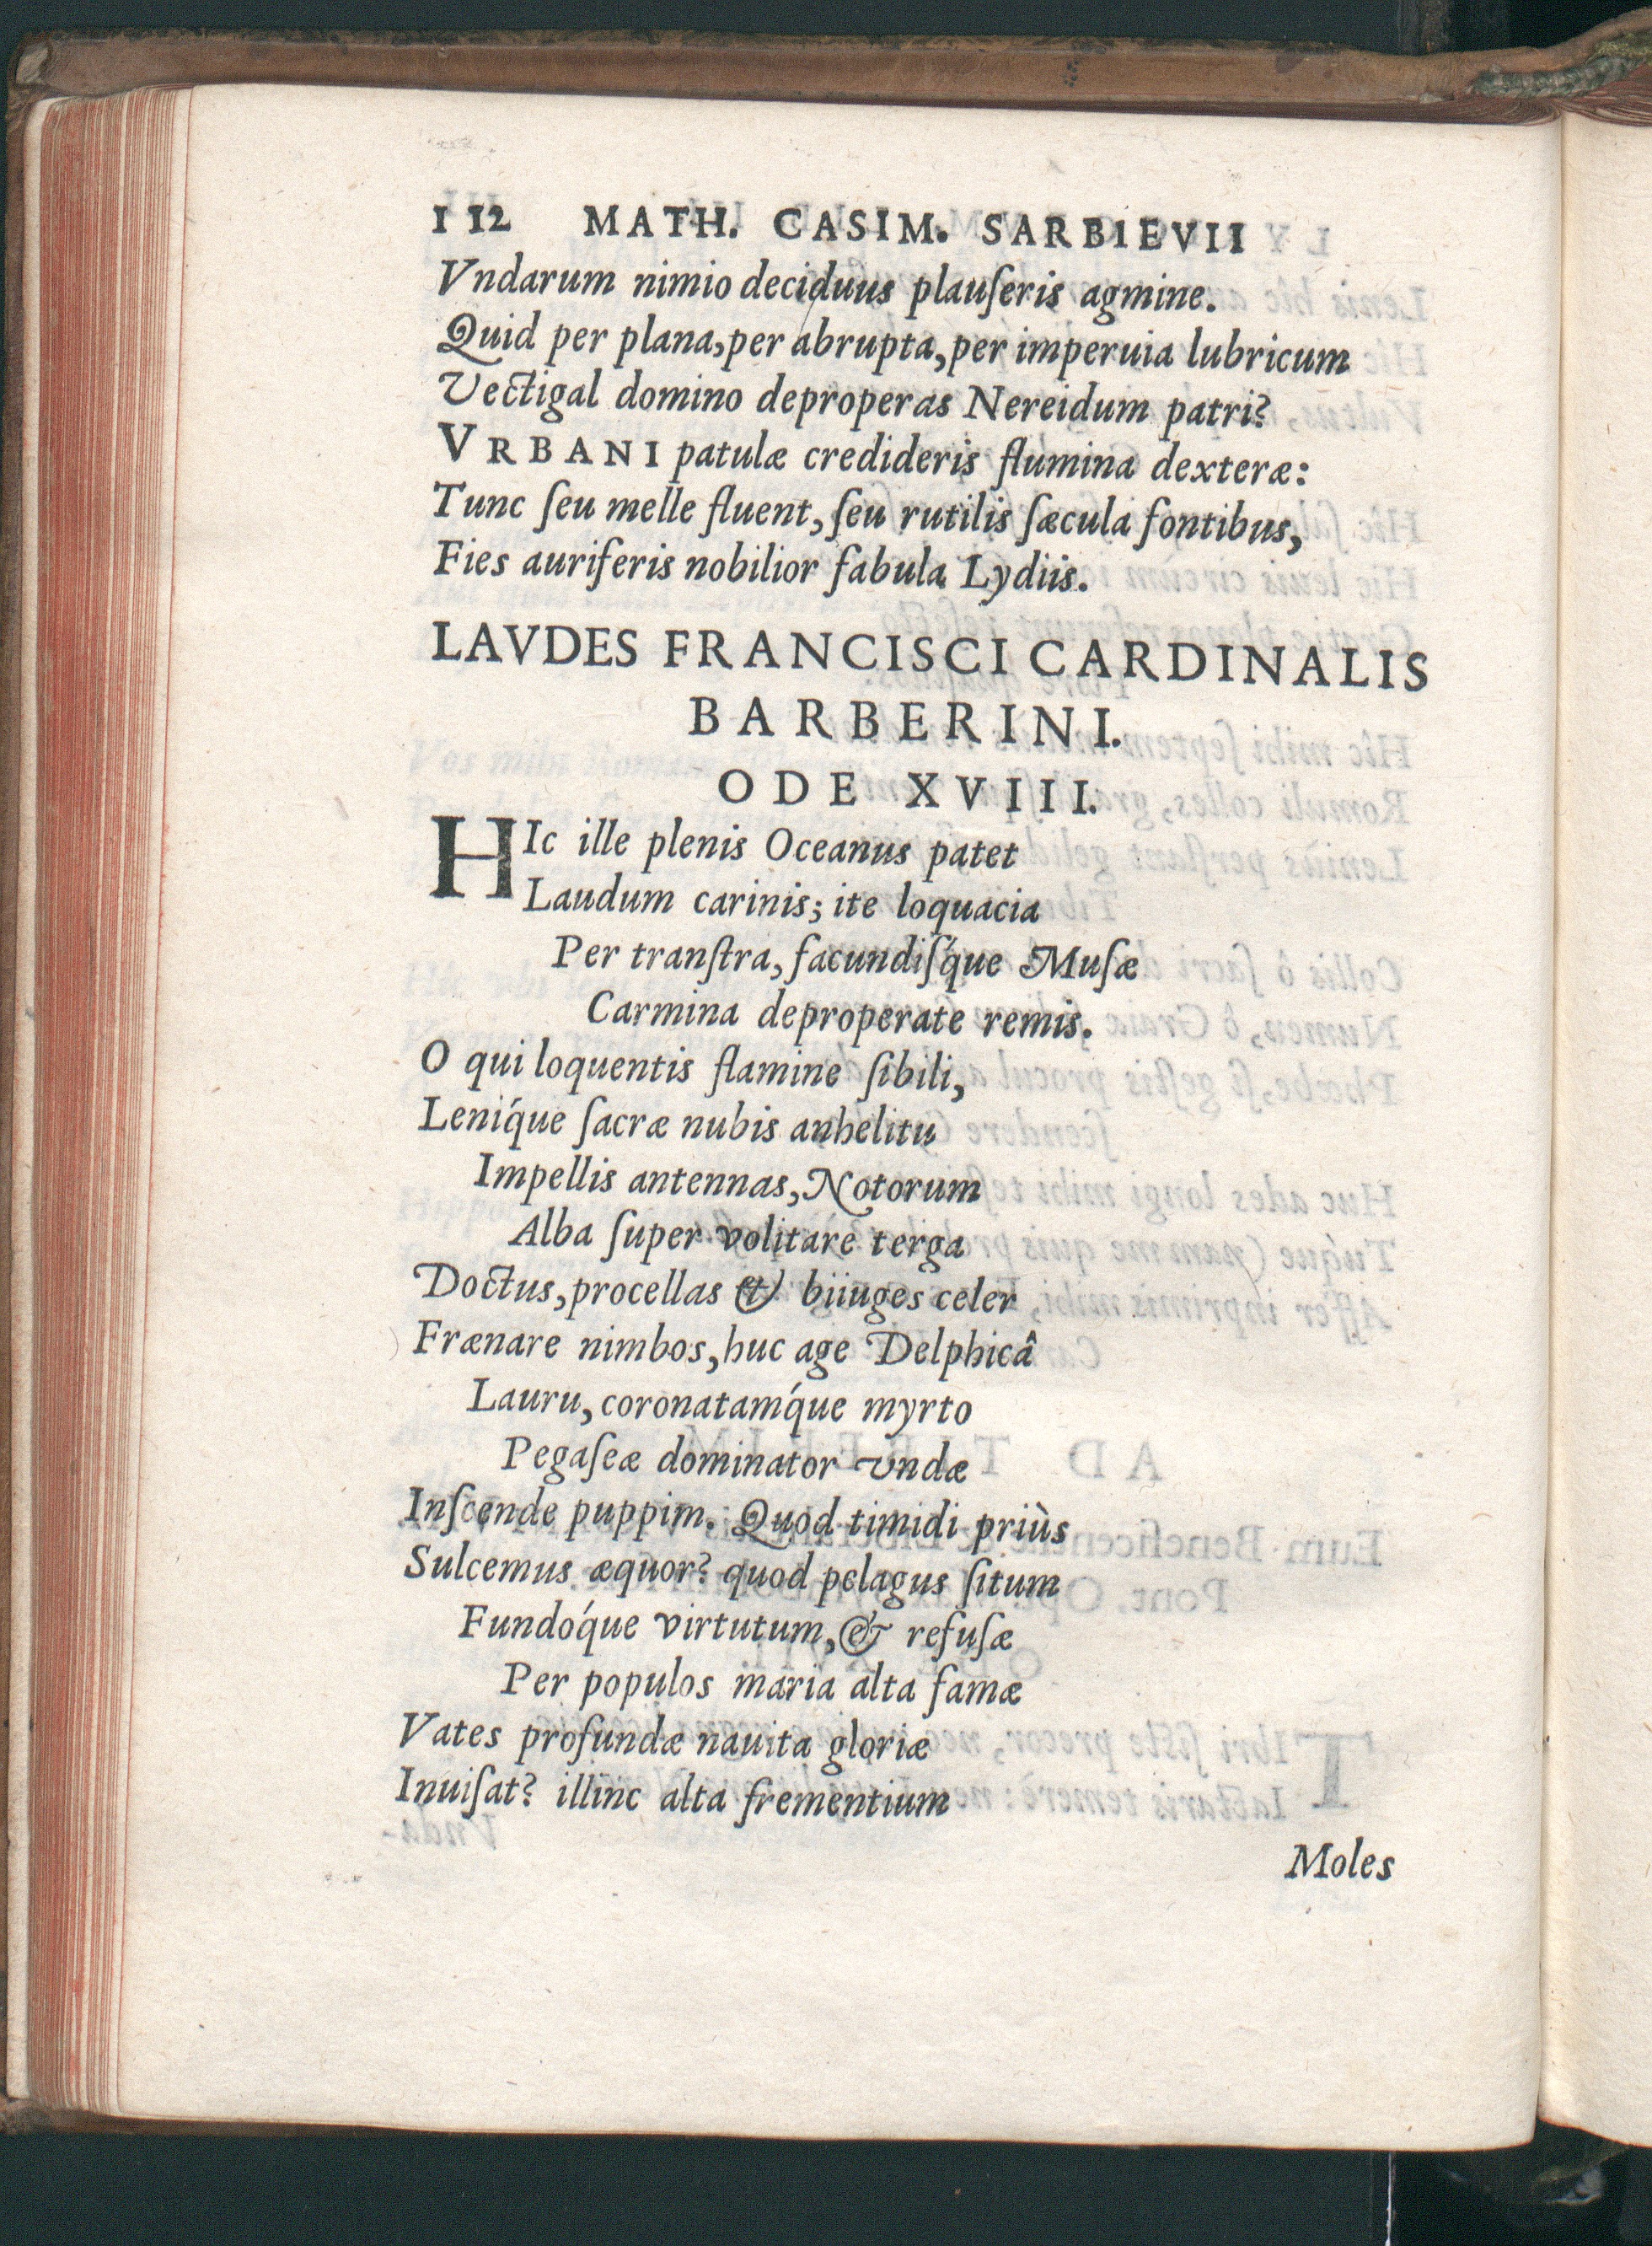 112 MATH. CASIM. SARBIEVII
Vndarum nimio deciduus plauſeris agmine.
Quid per plana, per abrupta, per imperuia lubricum
Vectigal domino deproperas Nereidum patri?
VRBANI patulæ credideris flumina dexteræ:
Tunc ſeu melle fluent, ſeu rutilis ſæcula fontibus,
Fies auriferis nobilior fabula Lydiis.
LAVDES FRANCISCI CARDINALIS
BARBERINI.
ODE XVIII.
HIc ille plenis Oceanus patet
Laudum carinis; ite loquacia
Per tranſtra, facundiſq́ue Muſæ
Carmina deproperate remis.
O qui loquentis flamine ſibili,
Leniq́ue ſacræ nubis anhelitu
Impellis antennas, Notorum
Alba ſuper volitare terga
Doctus, procellas & biiuges celer
Frænare nimbos, huc age Delphicâ
Lauru, coronatamq́ue myrto
Pegaſeæ dominator vndæ
Inſcende puppim. Quod timidi priùs
Sulcemus æquor? quod pelagus ſitum
Fundoq́ue virtutum, & refuſæ
Per populos maria alta famæ
Vates profundæ nauita gloriæ
Inuiſat? illinc alta frementium
Moles